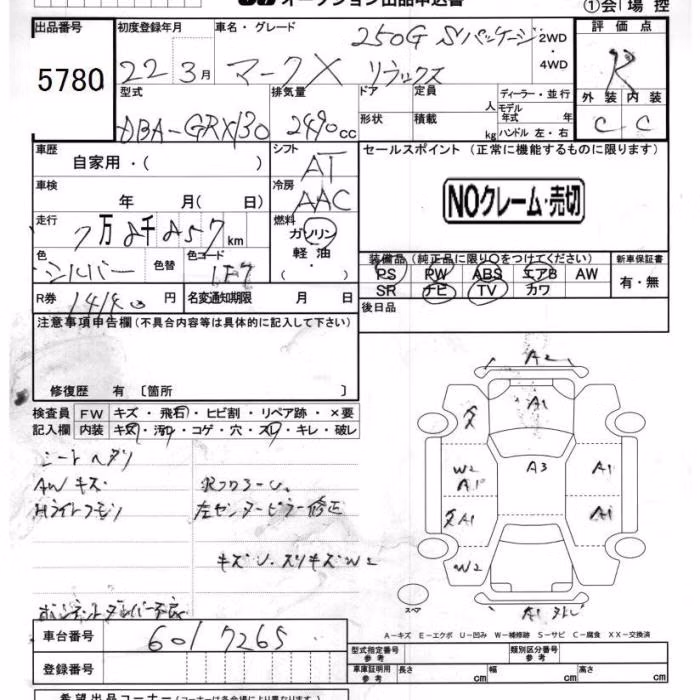 オークション出品申込書
①会場控
出品番号
5780
初度登録年月
22 3月
車名・グレード
250G Sパッケージ
マークX リラックス
2WD
・
4WD
評価点
R
外装 内装
C C
型式
DBA-GRX130
排気量
2490cc
ドア
形状
定員
人
積載
kg
ディーラー・並行
モデル年式 年
ハンドル 左・右
車歴
自家用・( )
シフト
AT
セールスポイント (正常に機能するものに限ります)
NOクレーム・売切
車検
年 月( 日)
冷房
AAC
走行
km
燃料
ガソリン
軽油
・
( )
色
シルバー
色替
色コード
1F7
装備品(純正品に限り○をつけてください)
PS PW ABS エアB AW
SR ナビ TV カワ
新車保証書
有・無
R券
円
名変通知期限 月 日
後日品
注意事項申告欄(不具合内容等は具体的に記入して下さい)
修復歴 有〔箇所 〕
検査員記入欄
FW キズ・飛石・ヒビ割・リペア跡・×要
内装 キズ・汚れ・コゲ・穴・スレ・キレ・破レ
シートヘタリ
AWキズ
Hライトクモリ
左センターピラー修正
キズU.スリキズW2
ボンネットダンパー不良
A2
A1
W2
A1
A3
A1
A1
A1
W2
スペア
A-キズ E-エクボ U-凹み W-補修跡 S-サビ C-腐食 XX-交換済
車台番号
6017265
登録番号
型式指定番号
参考
類別区分番号
参考
車庫証明用
参考
長さ cm
幅 cm
高さ cm
希望出品コーナー(コーナーは各会場により異なります。)